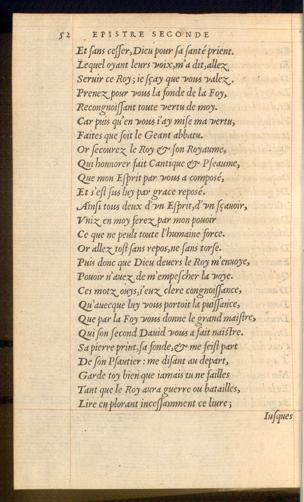 52 EPISTRE SECONDE
Et sans cesser, Dieu pour sa santé prient.
Lequel oyant leurs voix, m'a dit, allez
Seruir ce Roy; ie sçay que vous valez.
Prenez pour vous la fonde de la Foy,
Recongnoissant toute vertu de moy.
Car puis qu'en vous i'ay mise ma vertu,
Faites que soit le Geant abbatu.
Or secourez le Roy & son Royaume,
Qui honnorer fait Cantique & Pseaume,
Que mon Esprit par vous a composé,
Et s'est sus luy par grace reposé.
Ainsi tous deux d'vn Esprit, d'vn sçauoir,
Vniz en moy serez par mon pouoir
Ce que ne peult toute l'humaine force.
Or allez tost sans repos, ne sans torse.
Puis donc que Dieu deuers le Roy m'enuoye,
Pouoir n'auez de m'empescher la voye.
Ces motz oiys, i'euz clere congnoissance,
Qu'auecque luy vous portoit la puissance,
Que par la Foy vous donne le grand maistre,
Qui son second Dauid vous a fait naistre.
Sa pierre print, sa fonde, & me feist part
De son Psautier: me disant au depart,
Garde toy bien que iamais tu ne failles
Tant que le Roy aura guerre ou batailles,
Lire en plorant incessamment ce liure;
Iusques